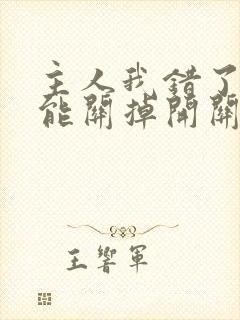 主人我错了
能關掉開關
王響軍